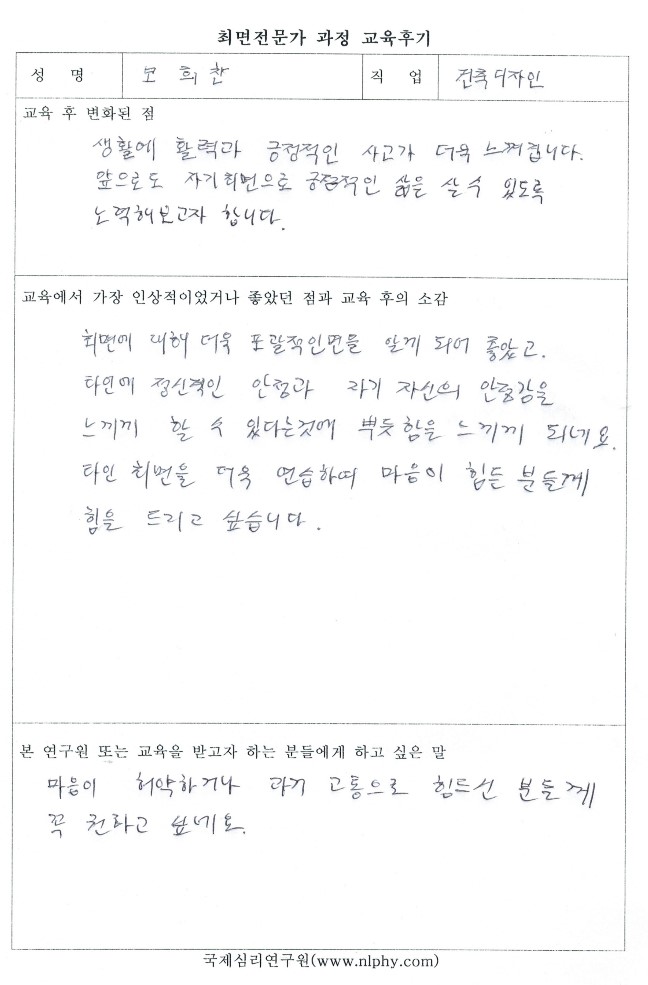 최면전문가 과정 교육후기
성 명 모희찬 직 업 건축디자인
교육 후 변화된 점
생활에 활력과 긍정적인 사고가 더욱 느껴집니다.
앞으로도 자기최면으로 긍정적인 삶을 살 수 있도록
노력해보고자 합니다.
교육에서 가장 인상적이었거나 좋았던 점과 교육 후의 소감
최면에 대해 더욱 포괄적인면을 알게 되어 좋았고.
타인에 정신적인 안정과 자기 자신의 안정감을
느끼끼 할 수 있다는것에 뿌듯함을 느끼끼 되네요.
타인 최면을 더욱 연습하며 마음이 힘든 분들께
힘을 드리고 싶습니다.
본 연구원 또는 교육을 받고자 하는 분들에게 하고 싶은 말
마음이 허약하거나 과거 고통으로 힘드신 분들께
꼭 권하고 싶네요.
국제심리연구원(www.nlphy.com)